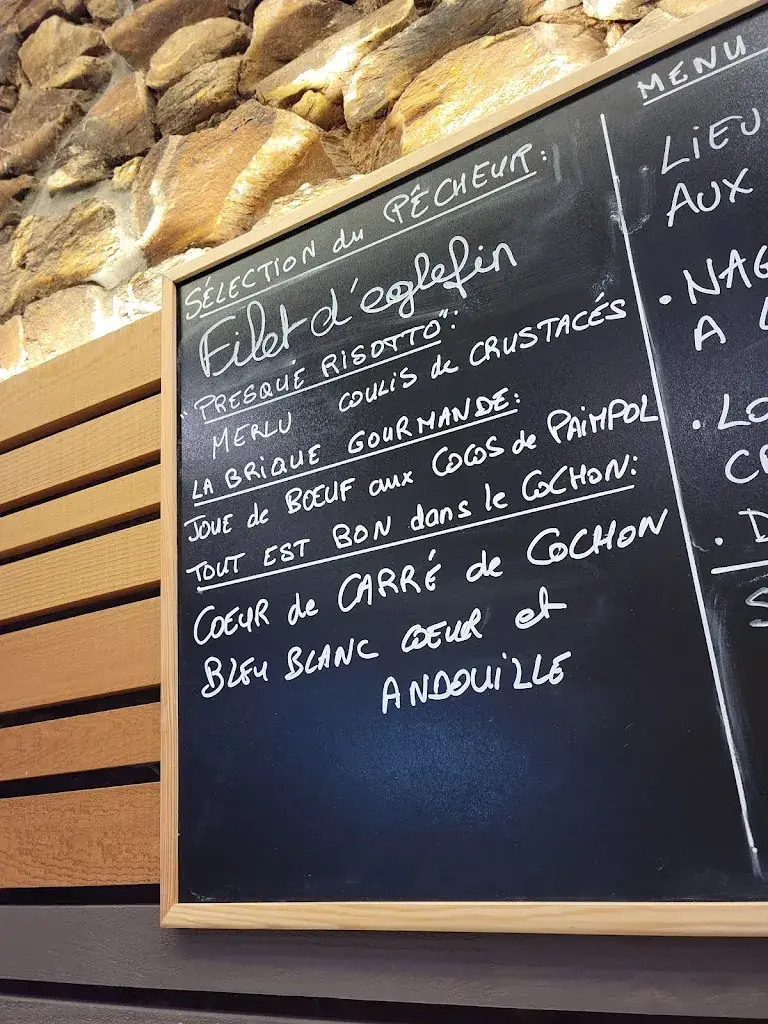 SÉLECTION du PÊCHEUR:
Filet d'eglefin
"PRESQUE RISOTTO":
MERLU COULIS de CRUSTACÉS
LA BRIQUE GOURMANDE:
JOUE de BOEUF aux COCOS de PAIMPOL
TOUT EST BON dans le COCHON:
COEUR de CARRÉ de COCHON
BLEU BLANC COEUR et
ANDOUILLE
MENU
LIEU
AUX
• NAG
A
• LO
CR
• D
S